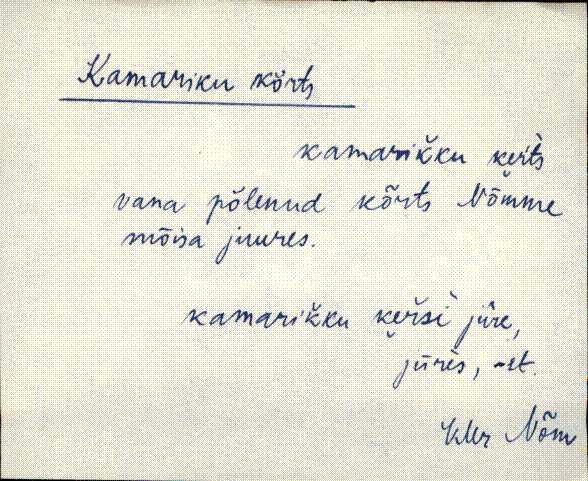 Kamariku kõrts
kamarikku kerts
vana põlenud kõrts Nõmme
mõisa juures.
kamarikku kersi jūre,
jūrès, -et.
KMr Nõm